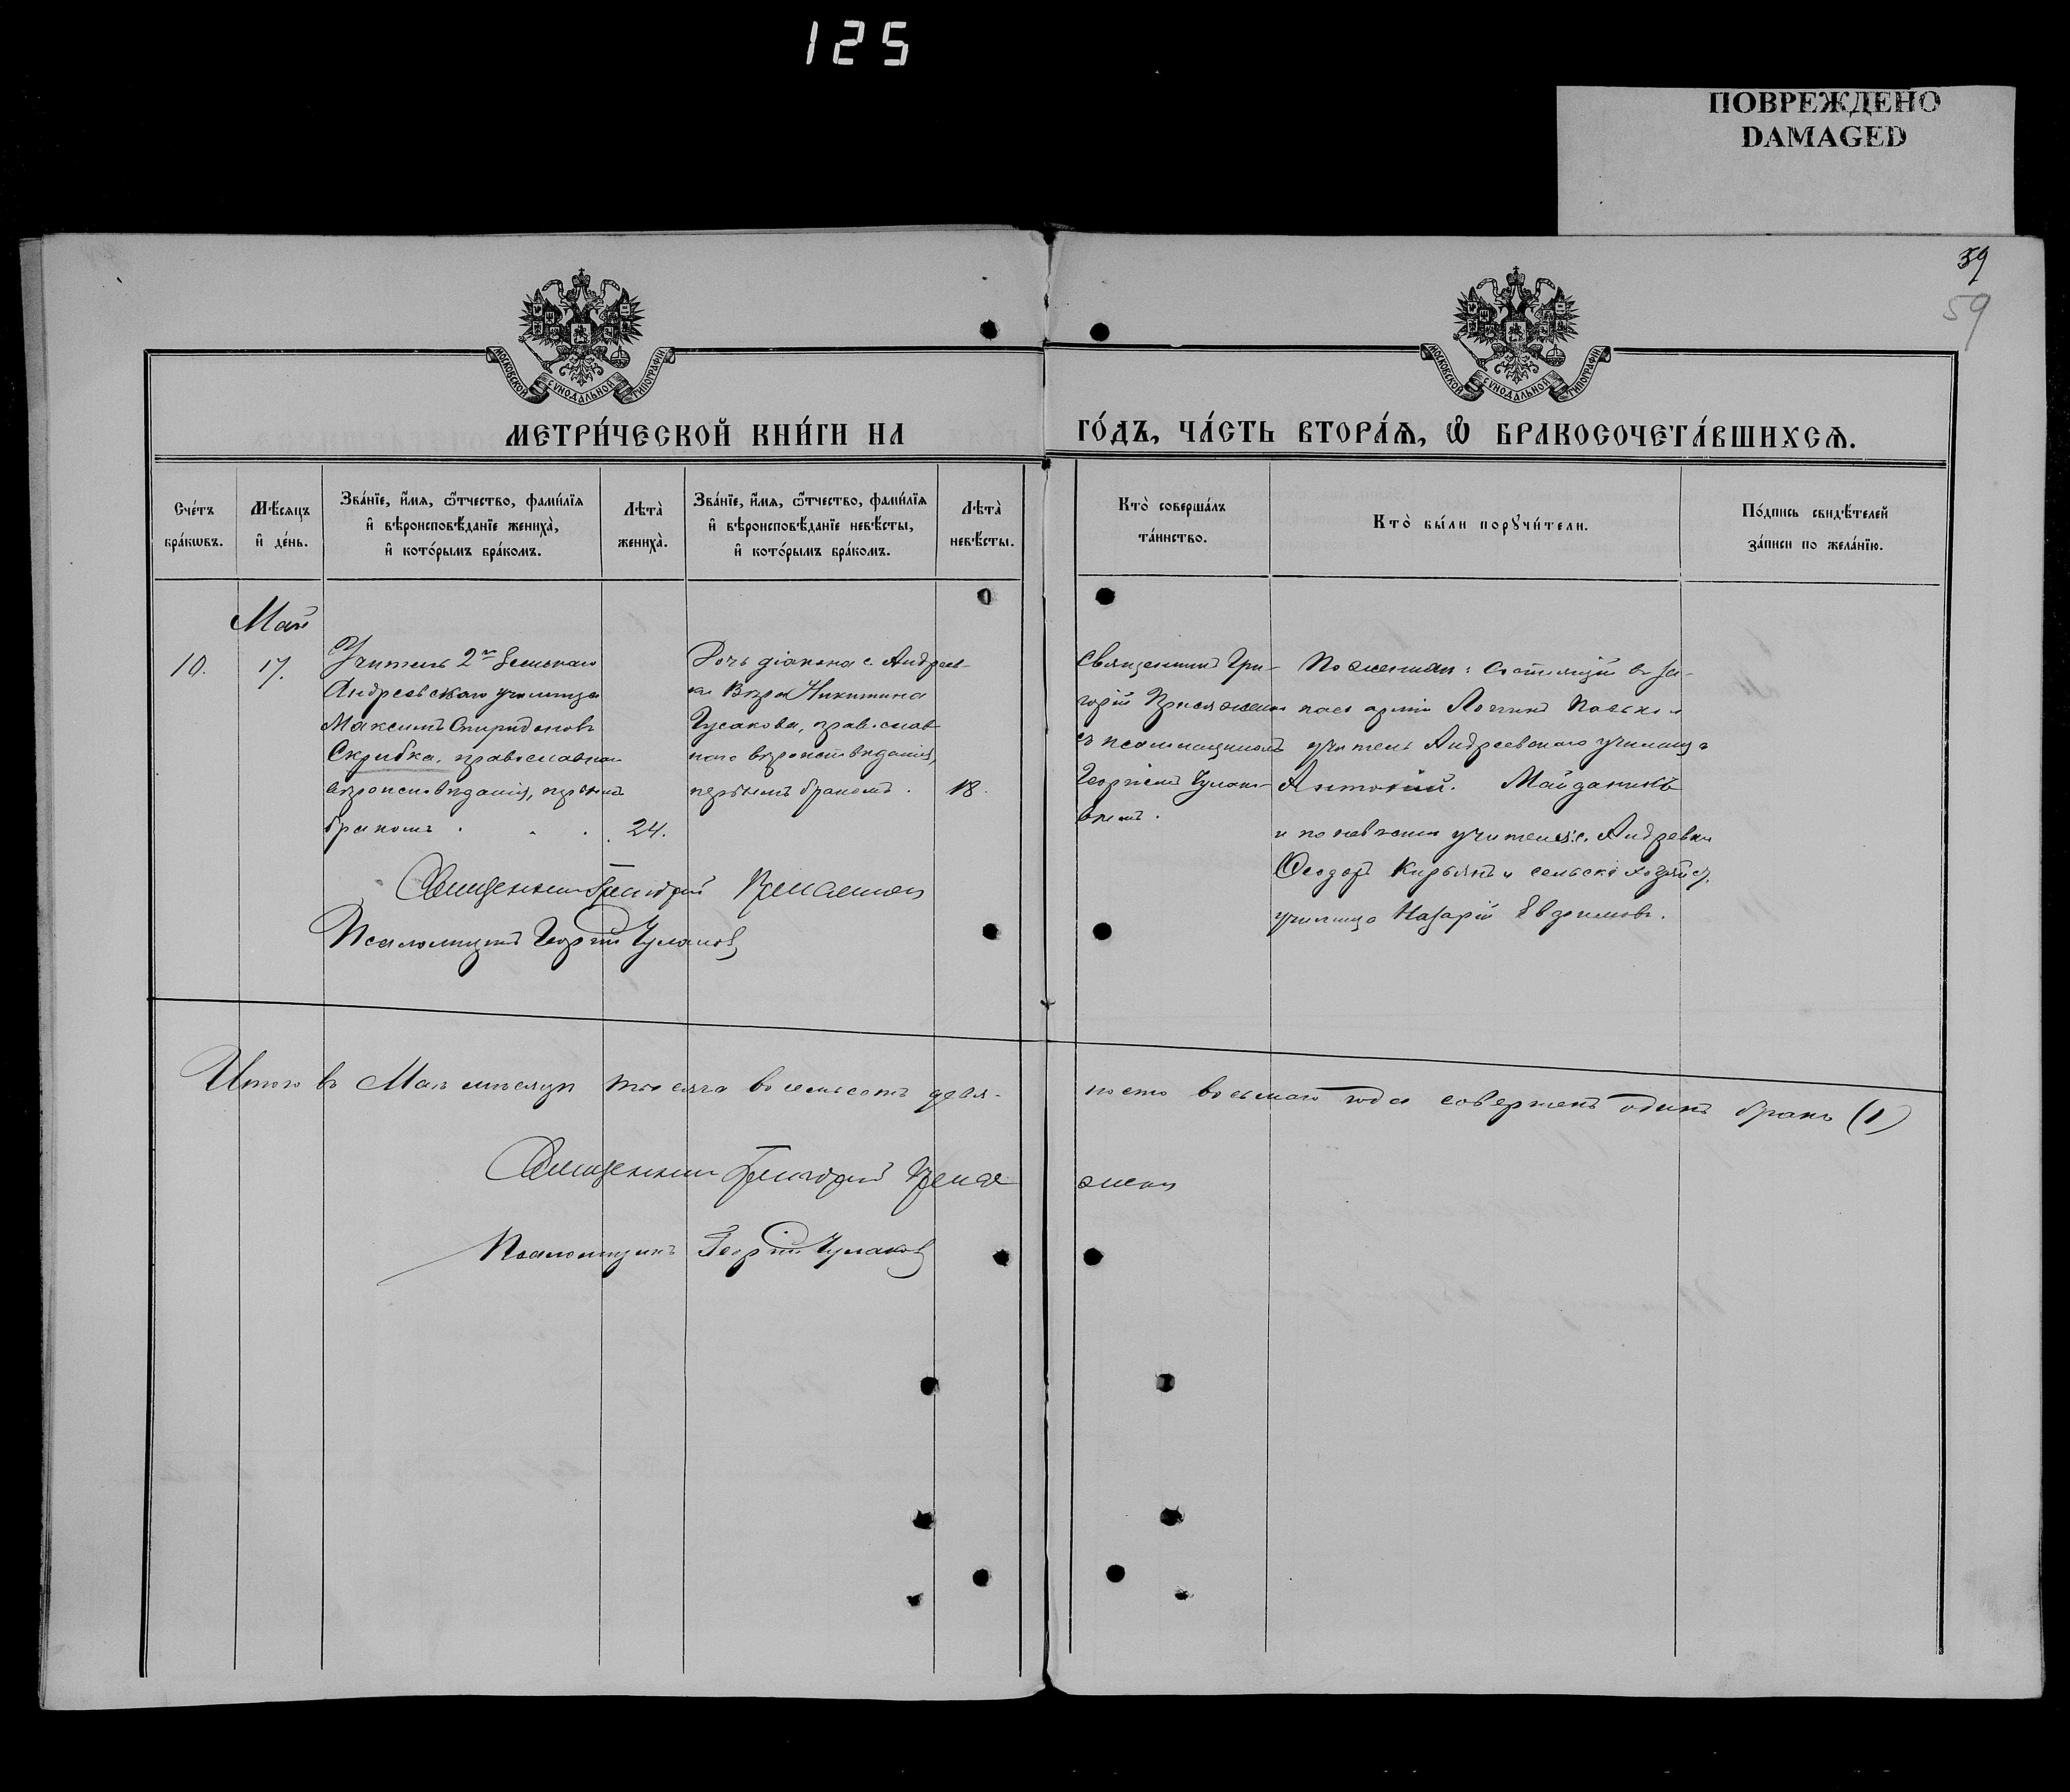 125
ПОВРЕЖДЕНО
DAMAGED
39
59
МОСКОВСКОЙ СѴНОДАЛЬНОЙ ТИПОГРАФІИ
МОСКОВСКОЙ СѴНОДАЛЬНОЙ ТИПОГРАФІИ
МЕТРИ́ЧЕСКОЙ КНИ́ГИ НА
ГО́ДЪ, ЧА́СТЬ ВТОРА́Ѧ, Ѽ БРАКОСОЧЕТА́ВШИХСѦ.
Сче́тъ бра́кѡвъ.
Мѣ́сяцъ и҆ де́нь.
Зва́нїе, и҆́мя, ѻ҆́тчество, фами́лїя и҆ вѣроисповѣ́данїе жениха̀, и҆ кото́рымъ бра́комъ.
Лѣта̀ жениха̀.
Зва́нїе, и҆́мя, ѻ҆́тчество, фами́лїя и҆ вѣроисповѣ́данїе невѣ́сты, и҆ кото́рымъ бра́комъ.
Лѣта̀ невѣ́сты.
Кто̀ соверша́лъ та́инство.
Кто̀ бы́ли порꙋчи́тели.
По́дпись свидѣ́телей за́писи по жела́нїю.
Май
10.
17.
Учитель 2го Земскаго
Андреевскаго училища
Максимъ Спиридоновъ
Скрибка, православнаго
вѣроисповѣданія, первымъ
бракомъ . . . 24.
Дочь діакона с. Андреев-
ки Вѣра Никитина
Гусакова, православ
наго вѣроисповѣданія,
первымъ бракомъ . 18.
Священникъ Гри-
горій Присяжени
съ псаломщикомъ
Георгіемъ Чулано-
вымъ.
По женихѣ: состоящій въ за-
пасѣ арміи Логгинъ
учитель Андреевскаго училища
Антоній. Майданикъ
и по невѣстѣ учитель с. Андреевки
Ѳеодоръ Кирьянъ и сельско хозяйст.
училища Назарій Евдокимовъ.
Священникъ Григорій
Псаломщикъ Георгій Чулановъ
Итого въ Маѣ мѣсяцѣ тысяча восемьсотъ девя-
носто восьмаго года совершенъ одинъ бракъ (1)
Священникъ Григорій Прися
жени
Псаломщикъ Георгій Чулановъ